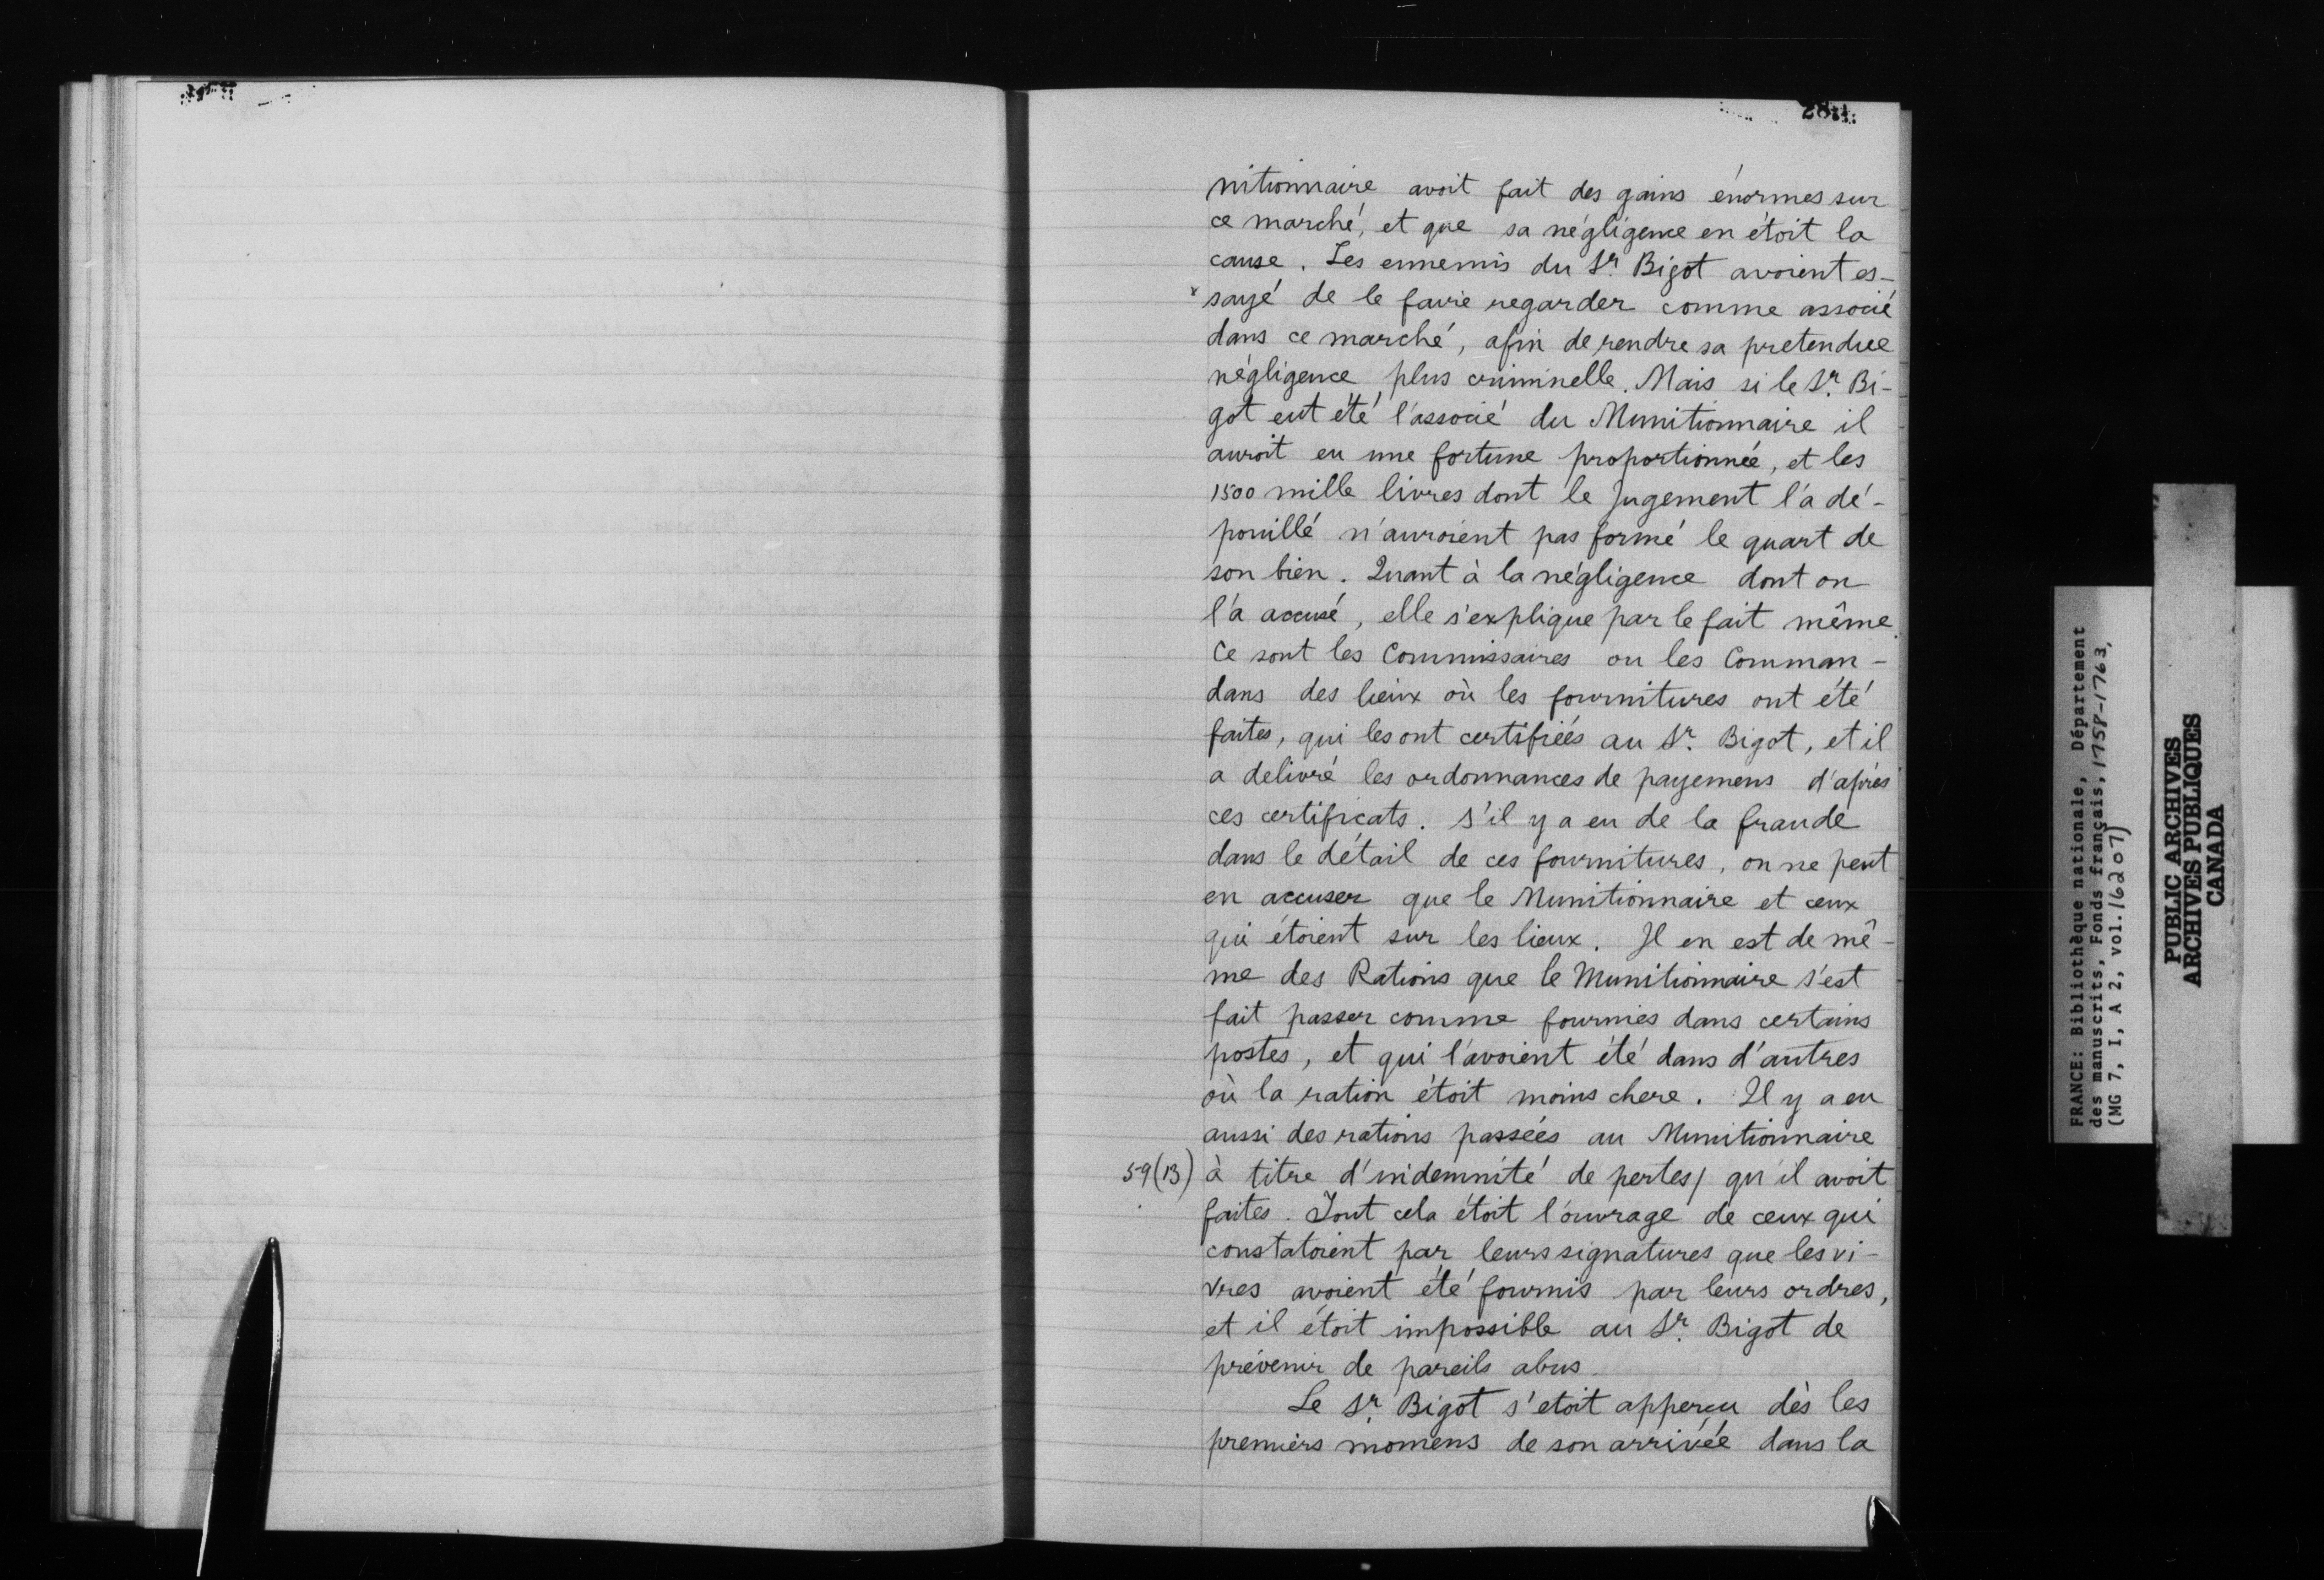 nitionnaire avoit fait des gains énormes sur
ce marché, et que sa négligence en étoit la
cause. Les ennemis du Sr. Bigot avoient es-
x sayé de le faire regarder comme associé
dans ce marché, afin de rendre sa pretendue
négligence plus criminelle. Mais si le Sr. Bi-
got eut été l'associé du Munitionnaire il
auroit eu une fortune proportionnée, et les
1500 mille livres dont le Jugement l'a dé-
pouillé n'auroient pas formé le quart de
son bien. Quant à la négligence dont on
l'a accusé, elle s'explique par le fait même.
Ce sont les Commissaires ou les Comman-
dans des lieux où les fournitures ont été
faites, qui les ont certifiées au Sr. Bigot, et il
a delivré les ordonnances de payemens d'après
ces certificats. S'il y a eu de la fraude
dans le détail de ces fournitures, on ne peut
en accuser que le Munitionnaire et ceux
qui étoient sur les lieux. Il en est de mê-
me des Rations que le Munitionnaire s'est
fait passer comme fournies dans certains
postes, et qui l'avoient été dans d'autres
où la ration étoit moins chere. Il y a eu
aussi des rations passées au Munitionnaire
59(13) à titre d'indemnité de pertes/ qu'il avoit
faites. Tout cela étoit l'ouvrage de ceux qui
constatoient par leurs signatures que les vi-
vres avoient été fournis par leurs ordres,
et il étoit impossible au Sr. Bigot de
prévenir de pareils abus.
Le Sr. Bigot s'etoit apperçu dès les
premiers momens de son arrivée dans la
FRANCE: Bibliothèque nationale, Département
des manuscrits, Fonds français, 1758-1763,
(MG 7, I, A 2, vol. 16207)
PUBLIC ARCHIVES
ARCHIVES PUBLIQUES
CANADA